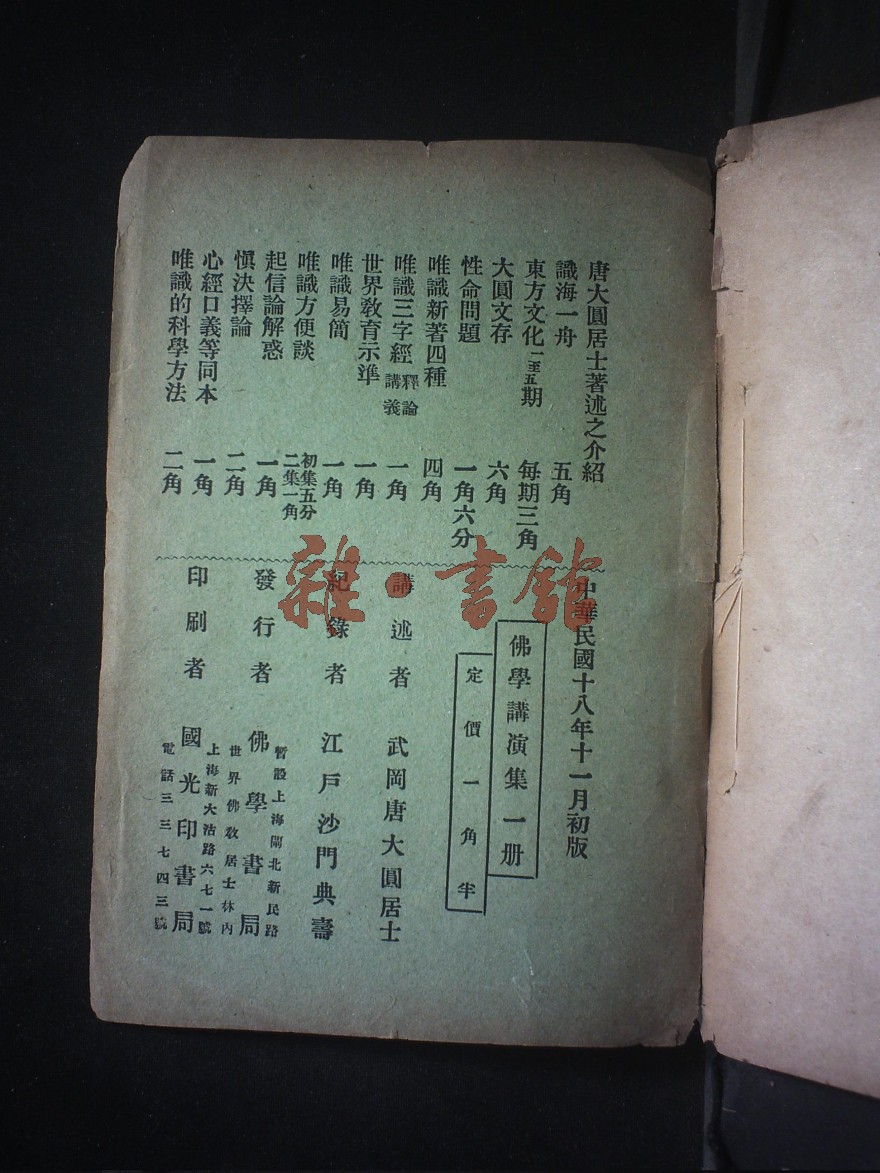 唐大圓居士著述之介紹
識海一舟 五角
東方文化一至五期 每期三角
大圓文存 六角
性命問題 一角六分
唯識新著四種 四角
唯識三字經釋論講義 一角
世界教育示準 一角
唯識易簡 一角
唯識方便談 初集五分二集一角
起信論解惑 一角
慎決擇論 二角
心經口義等同本 一角
唯識的科學方法 二角
中華民國十八年十一月初版
佛學講演集一册
定價一角半
講述者 武岡唐大圓居士
紀錄者 江戶沙門典壽
發行者 佛學書局
暫設上海閘北新民路
世界佛教居士林內
印刷者 國光印書局
上海新大沽路六七一號
電話三三七四三號
雜·書館